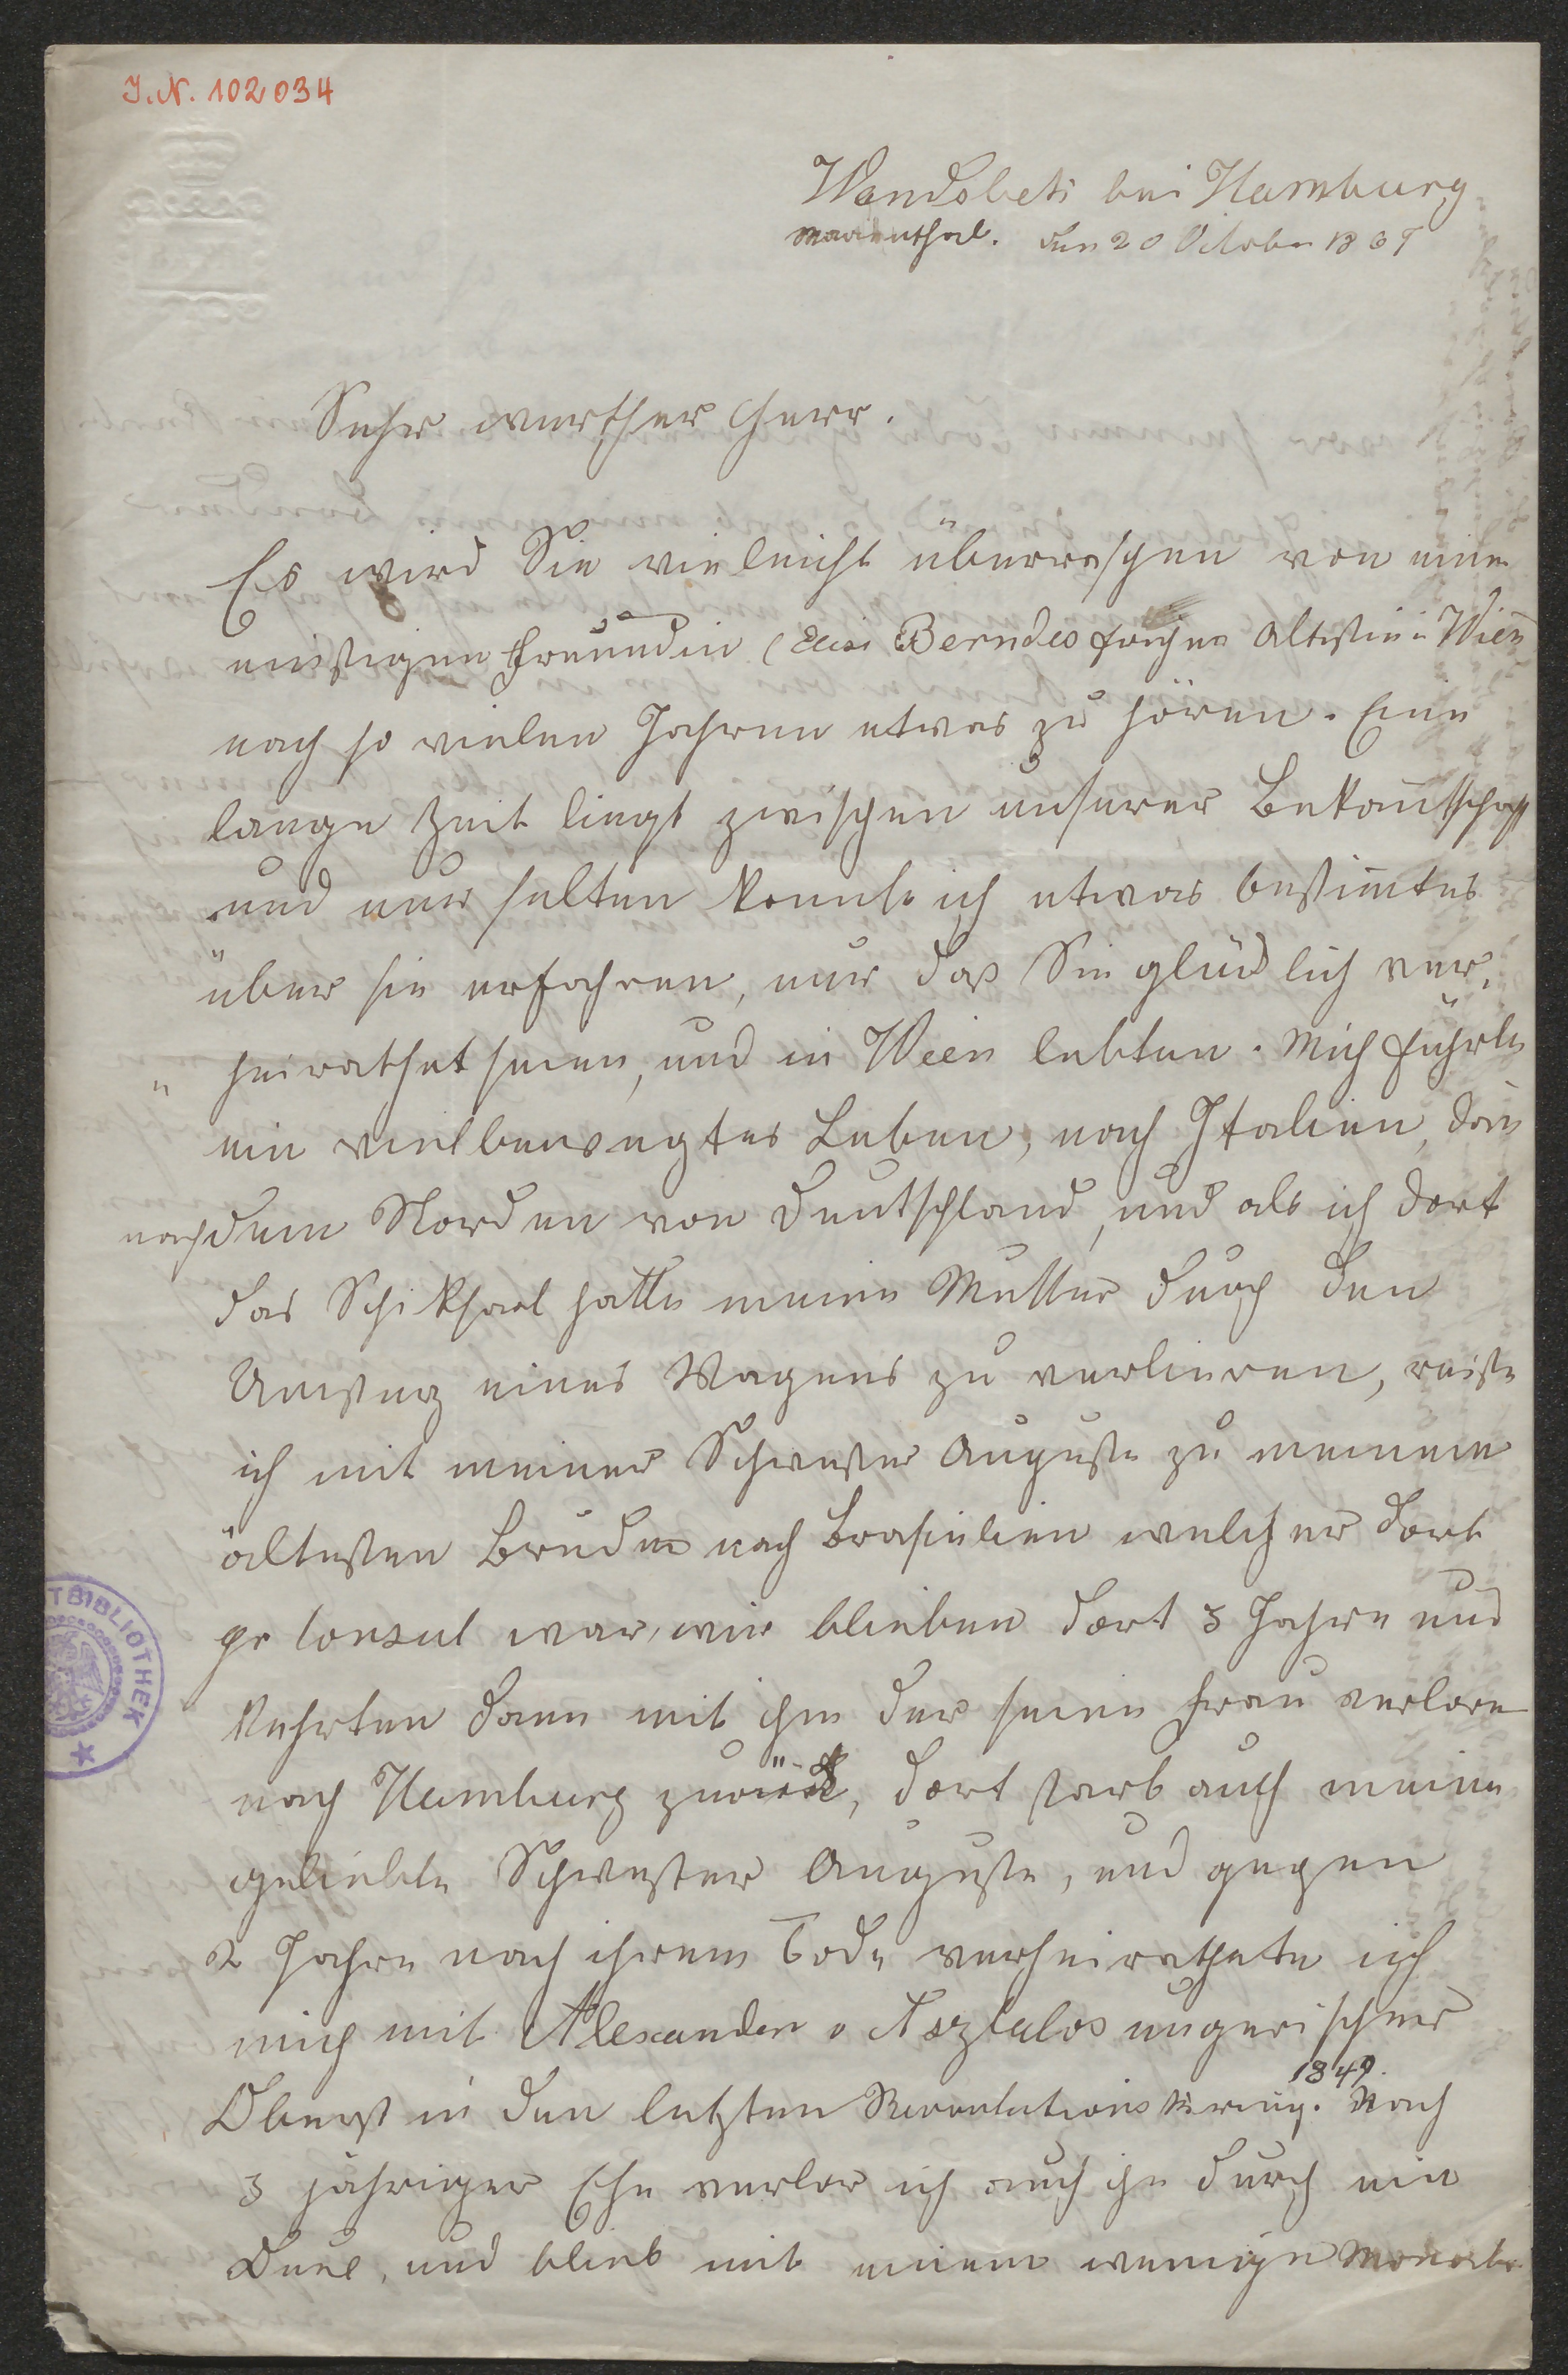 J.N. 102034
Wandsbek bei Hamburg
Marienthal. den 20 October 1869
Sehr werther Herr.
Es wird Sie vielleicht überraschen von einer
einstigen Freundin (Elise Berndes früher Altistin in Wien
nach so vielen Jahren etwas zu hören. Eine
lange Zeit liegt zwischen unserer Bekantschaft
und nur selten konnte ich etwas bestimtes
über sie erfahren, nur daß Sie glücklich ver„
„heirathet seien, und in Wien lebten. Mich führte
ein vielbewegtes Leben, nach Italien, dan
nach dem Norden von Deutschland, und als ich dort
das Schiksaal hatte meine Mutter durch den
Umsturz eines Wagens zu verlieren, reiste
ich mit meiner Schwester Auguste zu meinem
ältesten Bruder nach Brasielien welcher dort
Consul war, wir blieben dort 3 Jahre und
kehrten dann mit ihm der seine Frau verloren
nach Hamburg zurück, dort starb auch meine
geliebte Schwester Auguste, und gegen
2 Jahre nach ihrem Tode verheirathete ich
mich mit Alexander v Asztalos ungarischer
Oberst in den letzten Revolutions Krieg. 1849. Nach
3 jähriger Ehe verlor ich auch ihn durch ein
Duel, und blieb mit einem wenige Monate
TBIBLIOTHEK